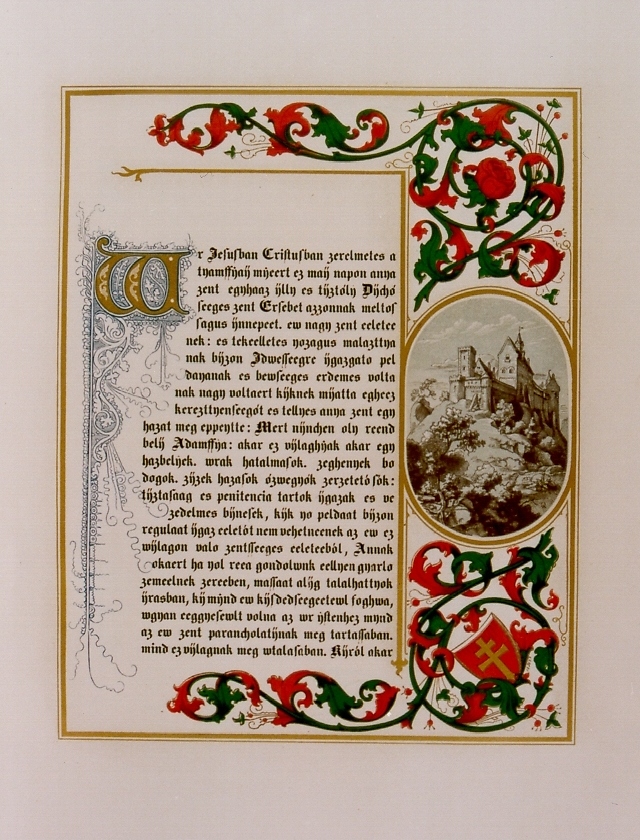 Wr Jesusban Cristusban zerelmetes a
tyamffyaij mijeert ez maij napon anya
zent egyhaaz ijlly es tijztoly Dijchó
seeges zent Ersebet azzonnak meltos
sagus ijnnepeet. ew nagy zent eeletee
nek: es tekeelletes yozagus malazttya
nak bijzon Jdwesseegre ijgazgato pel
dayanak es bewseeges erdemes volta
nak nagy voltaert kijknek mijatta eghez
kerezttyenseegót es tellyes anya zent egy
hazat meg eppeytte: Mert nijnchen oly reend
belij Adamffya: akar ez vijlaghijak akar egy
hazbelyek. wrak hatalmasok. zeghenyek bo
dogok. zijzek hazasok ózwegyók zerzetetó sók:
tijztasaag es penitencia tartok ijgazak es ve
zedelmes bijnesek, kijk yo peldaat bijzon
regulaat ijgaz eeletót nem vehetneenek az ew ez
wijlagon valo zentsseeges eeleteeból, Annak
okaert ha yol reea gondolwnk eellyen gyarlo
zemeelnek zereeben, massaat alijg talalhattyok
ijrasban, kij mijnd ew kijsdedseegeetewl foghwa,
wgyan eeggyesewlt volna az wr ijstenhez mynd
az ew zent parancholatijnak meg tartassaban.
mind ez vijlagnak meg wtalasaban. Kijról akar